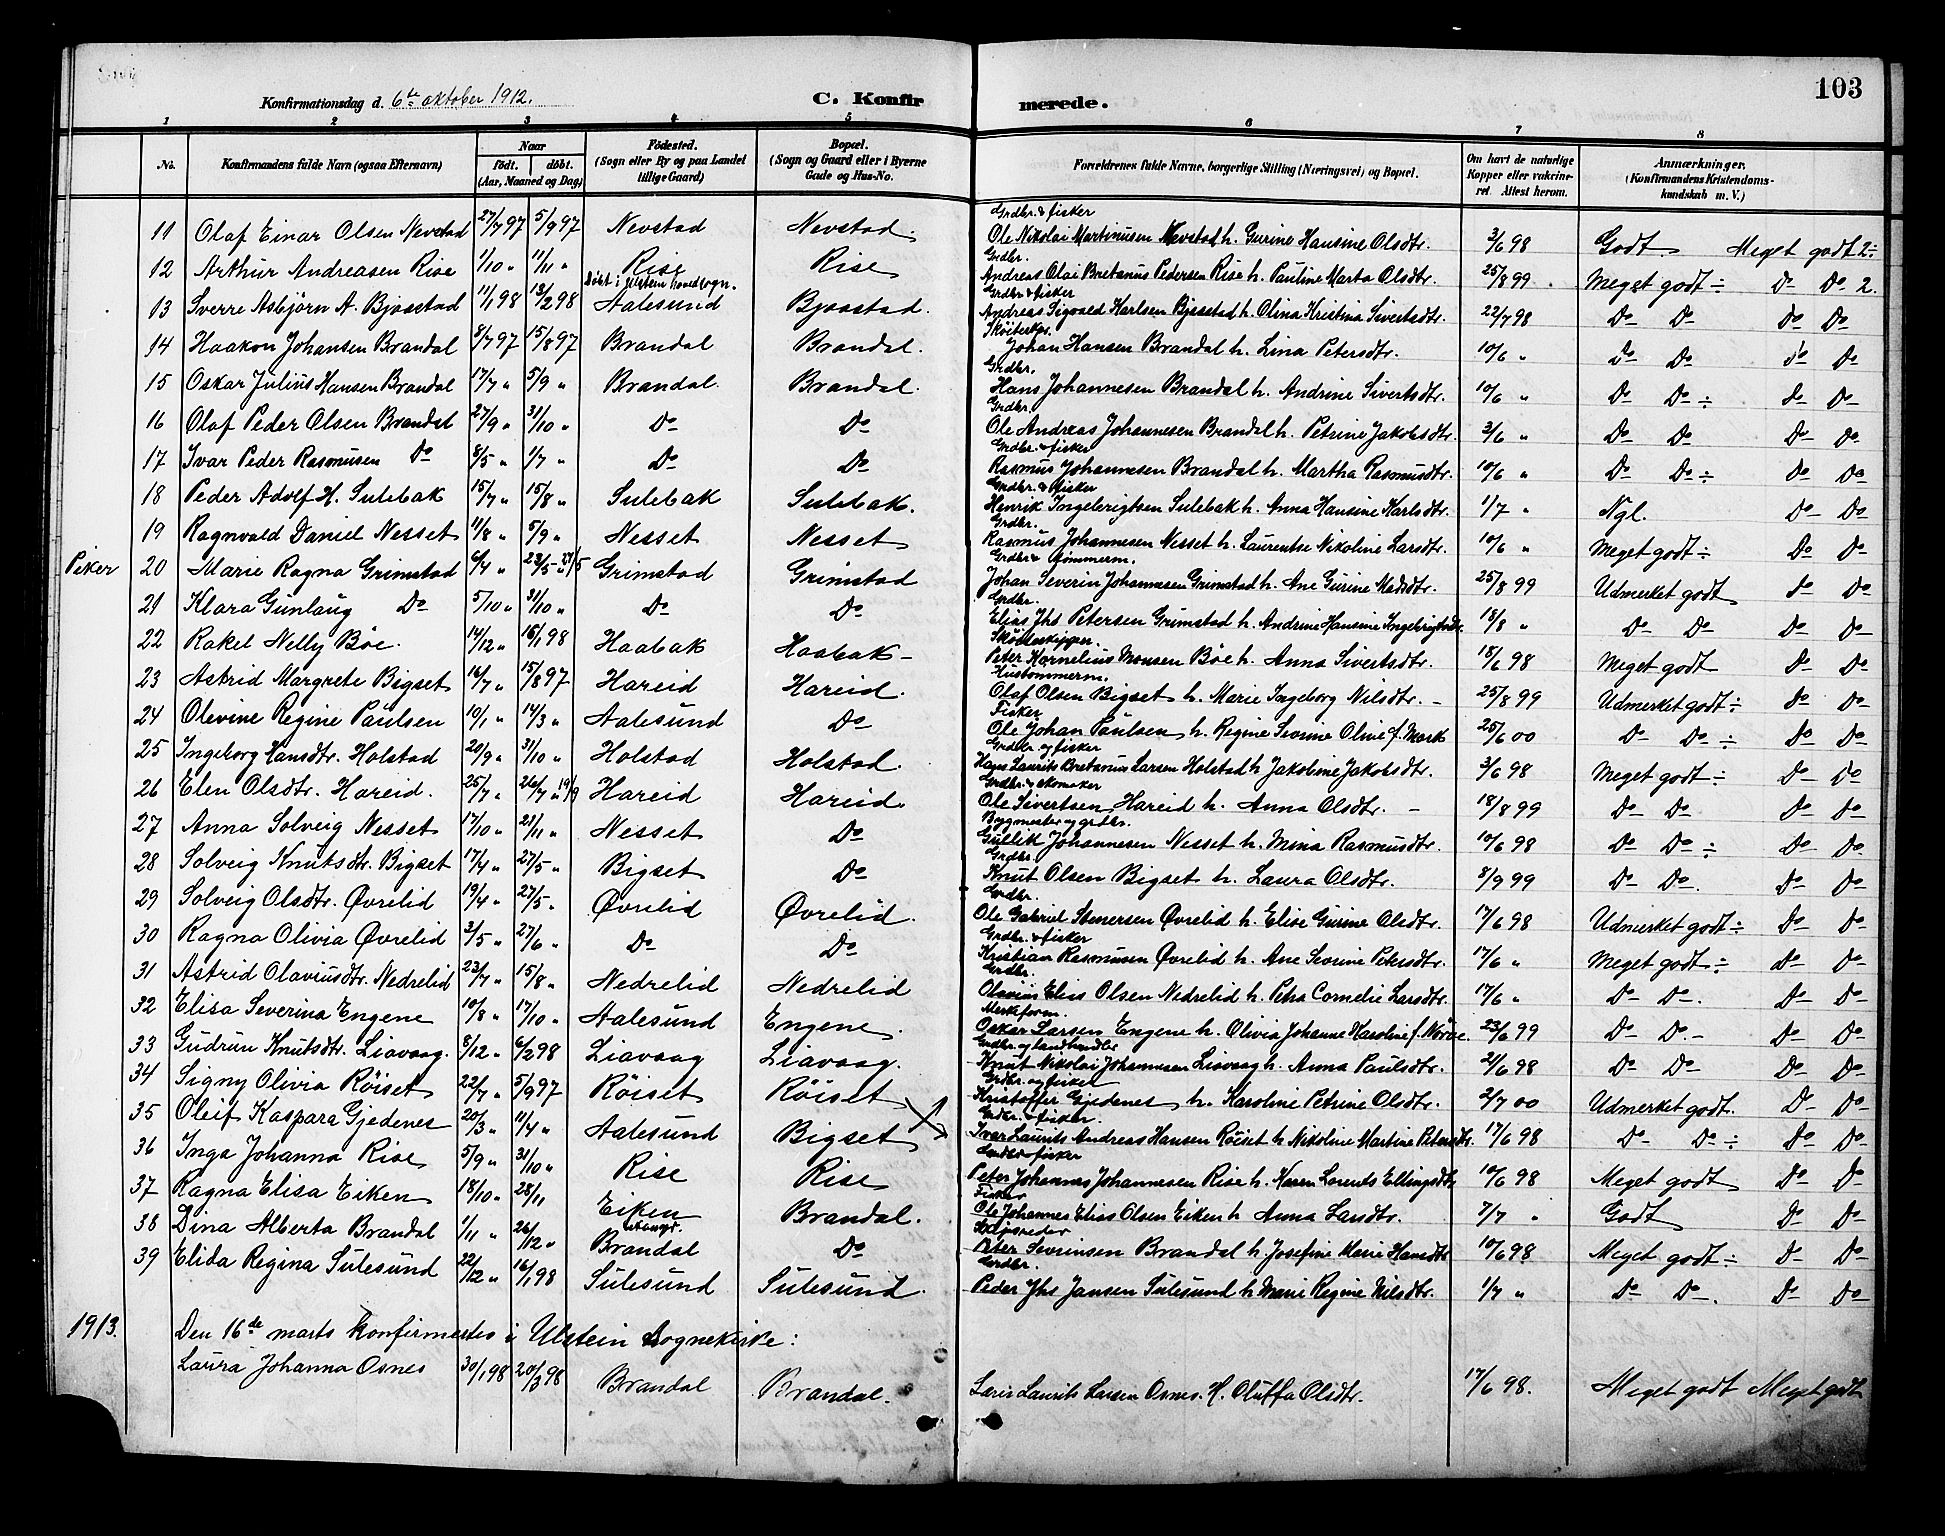 103
Konfirmationsdag d. 6te oktober 1912.
C. Konfirmerede.
1 2 3 4 5 6 7 8
No. Konfirmandens fulde Navn (ogsaa Efternavn) Naar födt. döbt. (Aar, Maaned og Dag) Födested. (Sogn eller By og paa Landet tillige Gaard) Bopæl. (Sogn og Gaard eller i Byerne Gade og Hus-No. Forældrenes fulde Navne, borgerlige Stilling (Næringsvei) og Bopæl. Om havt de naturlige Kopper eller vakcineret. Attest herom. Anmærkninger. (Konfirmandens Kristendomskundskab m. V.)
Grdbr. & fisker
11 Olaf Einar Olsen Nevstad 27/7 97 5/9 97 Nevstad Nevstad. Ole Nikolai Martinusen Nevstad h. Gurine Hansine Olsdtr. 3/6 98 Godt. Meget godt 2÷
Grdbr.
12 Arthur Andreasen Rise 1/10 " 11/11 " Rise Rise Andreas Olai Bretanus Pedersen Rise h. Pauline Marta Olsdtr. 25/8 99 Meget godt ÷ Do Do 2.
Döbt i Ulstein hovedsogn. Grdbr & fisker
13 Sverre Asbjörn A. Bjaastad 11/1 98 13/2 98 Aalesund Bjaastad. Andreas Sigvald Karlsen Bjaastad h. Olina Kristina Sivertsdtr. 22/7 98 Do Do Do Do
14 Haakon Johansen Brandal 8/7 97 15/8 97 Brandal Brandal. Johan Hansen Brandal h. Lina Petersdtr. 10/6 " Do Do Do Do
Grdbr.
15 Oskar Julius Hansen Brandal 17/7 " 5/9 " Brandal. Brandal. Hans Johannesen Brandal h. Andrine Sivertsdtr. 10/6 " Do Do ÷ Do Do
Grdbr.
16 Olaf Peder Olsen Brandal 27/9 " 31/10 " Do Do Ole Andreas Johannesen Brandal h. Petrine Jakobsdtr. 3/6 " Do Do Do Do
Grdbr. & fisker
17 Ivar Peder Rasmusen Do 8/5 " 1/7 " Do Do Rasmus Johannesen Brandal h. Martha Rasmusdtr. 10/6 " Do Do ÷ Do Do
Grdbr. & fisker
18 Peder Adolf H. Sulebak 15/7 " 15/8 " Sulebak Sulebak. Henrik Ingebrigtsen Sulebak h. Anna Hansine Karlsdtr. 1/7 " Ngl. Do Do
Grdbr.
19 Ragnvald Daniel Nesset 11/8 " 5/9 " Nesset Nesset Rasmus Johannesen Nesset h. Laurentse Nikoline Larsdtr. 10/6 " Meget godt ÷ Do Do
Grdbr & tömmerm.
Piker 20 Marie Ragna Grimstad 6/4 " 23/5 " Grimstad Grimstad Johan Severin Johannesen Grimstad h. Ane Gurine Madsdtr. 25/8 99 Udmerket godt Do Do
Grdbr.
21 Klara Gunlaug Do 5/10 " 31/10 " Do Do Elias Jhs Petersen Grimstad h. Andrine Hansine Ingebrigtsdtr. 18/8 " Do Do Do Do
Sköiteskipper.
22 Rakel Nelly Böe. 14/12 " 16/1 98 Haabak Haabak Peter Kornelius Monsen Böe h. Anna Sivertsdtr. 18/6 98 Meget godt Do Do
Hustömmerm.
23 Astrid Margrete Bigset 16/7 " 15/8 97 Hareid Hareid. Olaf Olsen Bigset h. Marie Ingeborg Nilsdtr. 25/8 99 Udmerket godt ÷ Do Do
Fisker
24 Olevine Regine Paulsen 10/1 " 14/3 " Aalesund Do Ole Johan Paulsen h. Regine Severine Oline f. Mork 25/6 00 Do Do ÷ Do Do
Grdbr og fisker
25 Ingeborg Hansdtr. Holstad 20/9 " 31/10 " Holstad Holstad. Hans Laurits Bretanus Larsen Holstad h Jakobine Jakobsdtr. 3/6 98 Meget godt ÷ Do Do
Grdbr. & skomaker
26 Elen Olsdtr. Hareid. 25/7 " 26/7 " 19/9 Hareid Hareid. Ole Sivertsen Hareid h. Anna Olsdtr. 18/8 99 Do Do Do Do
Bygmester og grdbr.
27 Anna Solveig Nesset 17/10 " 21/11 " Nesset Do Gullik Johannesen Nesset h. Mina Rasmusdtr. 10/6 98 Do Do ÷ Do Do
Grdbr.
28 Solveig Knutsdtr. Bigset 17/4 " 27/5 " Bigset Do Knut Olsen Bigset h. Laura Olsdtr. 8/9 99 Do Do. Do Do
Grdbr.
29 Solveig Olsdtr. Øvrelid 19/4 " 27/5 " Øvrelid Øvrelid. Ole Gabriel Simersen Øvrelid h. Elise Gurine Olsdtr. 17/6 98 Udmerket godt ÷ Do Do
Grdbr. & fisker
30 Ragna Olivia Øvrelid 3/5 " 27/6 " Do Do Kristian Rasmusen Øvrelid h. Ane Severine Petersdtr. 17/6 " Meget godt ÷ Do Do
Grdbr.
31 Astrid Olaviusdtr. Nedrelid 23/7 " 15/8 " Nedrelid Nedrelid Olavius Elias Olsen Nedrelid h. Petra Cornelie Larsdtr. 17/6 " Do Do. Do Do
32 Elisa Severina Engene 10/8 " 17/10 " Aalesund Engene. Oskar Larsen Engene h. Olivia Johanne Karoline f. Nöroe. 23/6 99 Do Do Do Do
Grdbr. og landhandler
33 Gudrun Knutsdtr. Liavaag. 8/12 " 6/2 98 Liavaag Liavaag. Knut Nikolai Johannesen Liavaag h. Anna Paulsdtr. 2/6 98 Do Do Do Do
Grdbr. og fisker
34 Signy Olivia Röiset 22/7 " 5/9 97 Röiset Röiset Kristoffer Gjedenes h. Karoline Petrine Olsdtr. 2/7 00 Udmerket godt. Do Do
Grdbr. & fisker.
35 Oleif Kaspara Gjedenes 20/3 " 11/4 " Aalesund Bigset Ivar Laurits Andreas Hansen Röiset h Nikoline Martine Petersdtr. 17/6 98 Do Do ÷ Do Do
36 Inga Johanna Rise 5/9 " 31/10 " Rise Rise Peter Johannes Johannesen Rise h. Karen Lorents Ellingsdtr. 10/6 98 Meget godt Do Do
Fisker
37 Ragna Elisa Eiken 18/10 " 28/11 Eiken Brandal. Ole Johannes Elias Olsen Eiken h Anna Larsdtr. 7/7 " Godt Do Do
Skipsreder
38 Dina Alberta Brandal 1/11 " 26/12 " Brandal Do Peter Severinsen Brandal h. Josefine Marie Hansdtr 10/6 98 Meget godt ÷ Do Do
Grdbr.
39 Elida Regina Sulesund 22/12 " 16/1 98 Sulesund Sulesund. Peder Jhs Jansen Sulesund h Marie Regine Nilsdtr. 1/7 " Do Do. Do Do
1913. Den 16de marts konfirmertes i Ulstein sognekirke:
Laura Johanna Osnes 30/1 98 20/3 98 Brandal Brandal. Laris Laurits Larsen Osnes. H. Oluffa Olsdtr. 17/6 98. Meget godt Meget godt